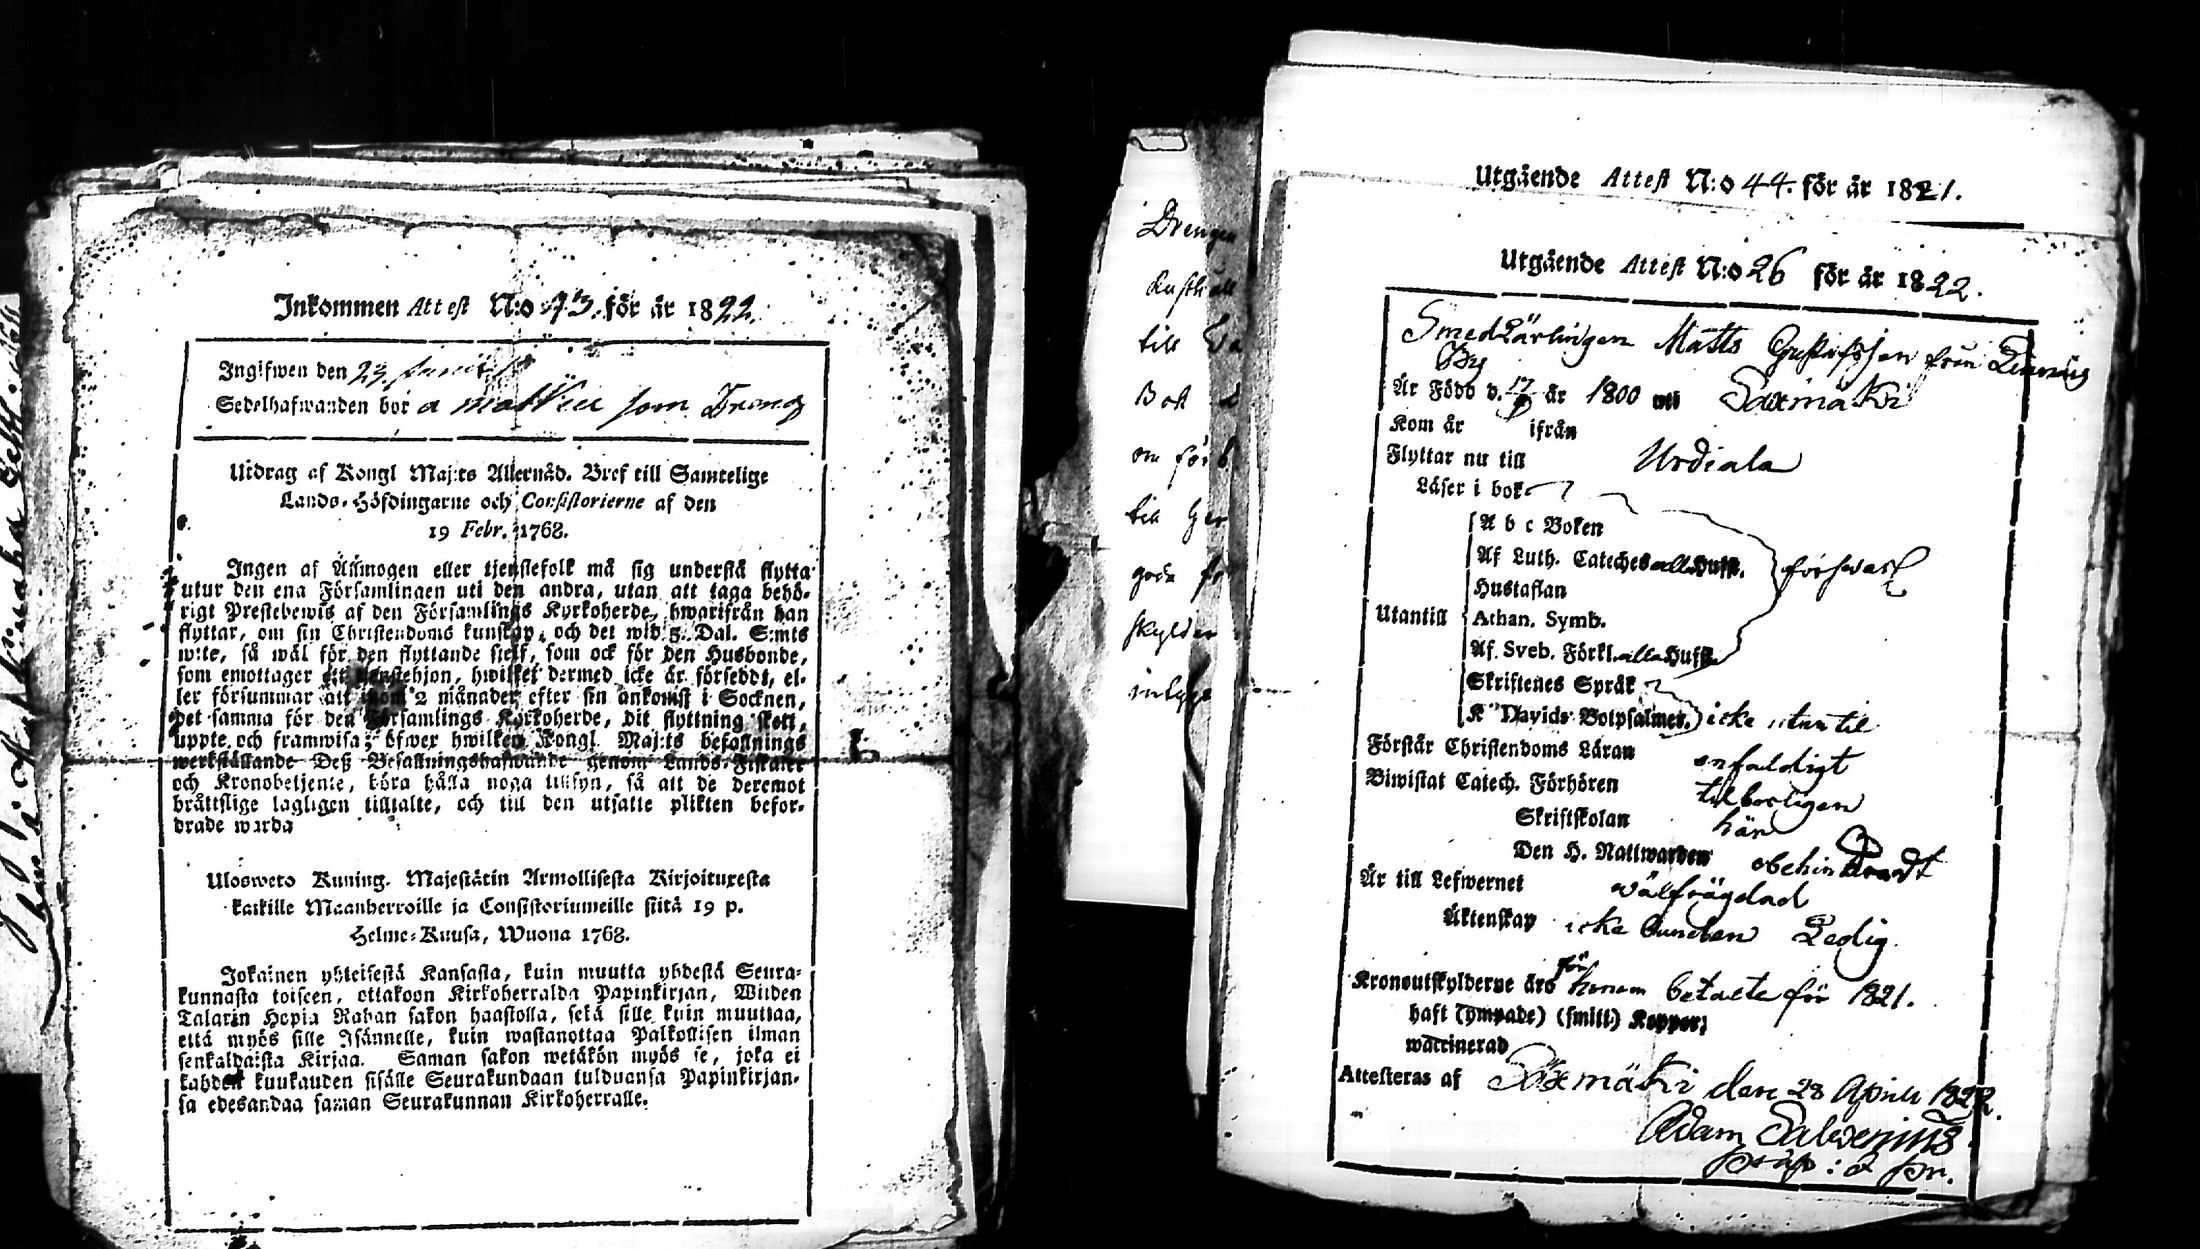 Inkommen Attest N:o 73. för år 1822.
Ingifwen den 23
Sedelhafwanden bor a som Dreng
Utdrag af Kongl Maj:ts Allernåd. Bref till Samtelige
Lands-Höfdingarne och Consistorierne af den
19 Febr. 1768.
Ingen af Allmogen eller tjenstefolk må sig understå flytta
utur den ena Församlingen uti den andra, utan att taga behö-
rigt Prestebewis af den Församlings Kyrkoherde, hwarifrån han
flyttar, om sin Christendoms kunskap, och det wid 5. Dal. S:mts
wite, så wäl för den flyttande sielf, som ock för den Husbonde,
som emottager ett tjenstehjon, hwilket dermed icke är försedt, el-
ler försummar att inom 2 månader efter sin ankomst i Socknen,
det samma för den Församlings Kyrkoherde, dit flyttning skett,
uppte och framwisa; öfwer hwilken Kongl Maj:ts befallnings
werkställande Deß Befallningshafwande genom Lands-Fiskaler
och Kronobetjente, böra hålla noga tillsyn, så att de deremot
bråttslige lagligen tilltalte, och till den utsatte plikten befor-
drade warda
Ulosweto Kuning. Majestätin Armollisesta Kirjoituxesta
kaikille Maanherroille ja Consistoriumeille siitä 19 p.
Helme-Kuusa, Wuona 1768.
Jokainen yhteisestä Kansasta, kuin muutta yhdestä Seura-
kunnasta toiseen, ottakoon Kirkoherralda Papinkirjan, Wiiden
Talarin Hopia Rahan sakon haastolla, sekä sille kuin muuttaa,
että myös sille Isännelle, kuin wastanottaa Palkollisen ilman
senkaldaista Kirjaa. Saman sakon wetäkön myös se, joka ei
kahden kuukauden sisälle Seurakundaan tulduansa Papinkirjan-
sa edesandaa saman Seurakunnan Kirkoherralle.
Drengen
till
Bok
om förb
till
goda
Utgående Attest N:o 44. för år 1821.
Utgående Attest N:o 26 för år 1822.
SmedLärlingen Matts Gustafsson från
By
Är Född d. 17 år 1800 uti Saxmäki
Kom år ifrån
Flyttar nu till Urdiala
Läser i bok
A b c Boken
Af Luth. Cateches alla Hufst. försvarl
Hustaflan
Utantill Athan. Symb.
Af Sveb. Förkl. alla Hufst
Skriftenes Språk
K Davids Botpsalmer. icke utantil
Förstår Christendoms Läran enfaldigt
Biwistat Catech. Förhören tilbörligen
Skriftskolan här
Den H. Nattwarden obehindradt
Är till Lefwernet wälfrägdad
Äktenskap icke bunden Ledig.
Kronoutskylderne äro för honom betalte för 1821.
haft (ympade) (smitt) Koppor;
waccinerad
Attesteras af Saxmäki den 28 April 1822.
Adam Salvenius